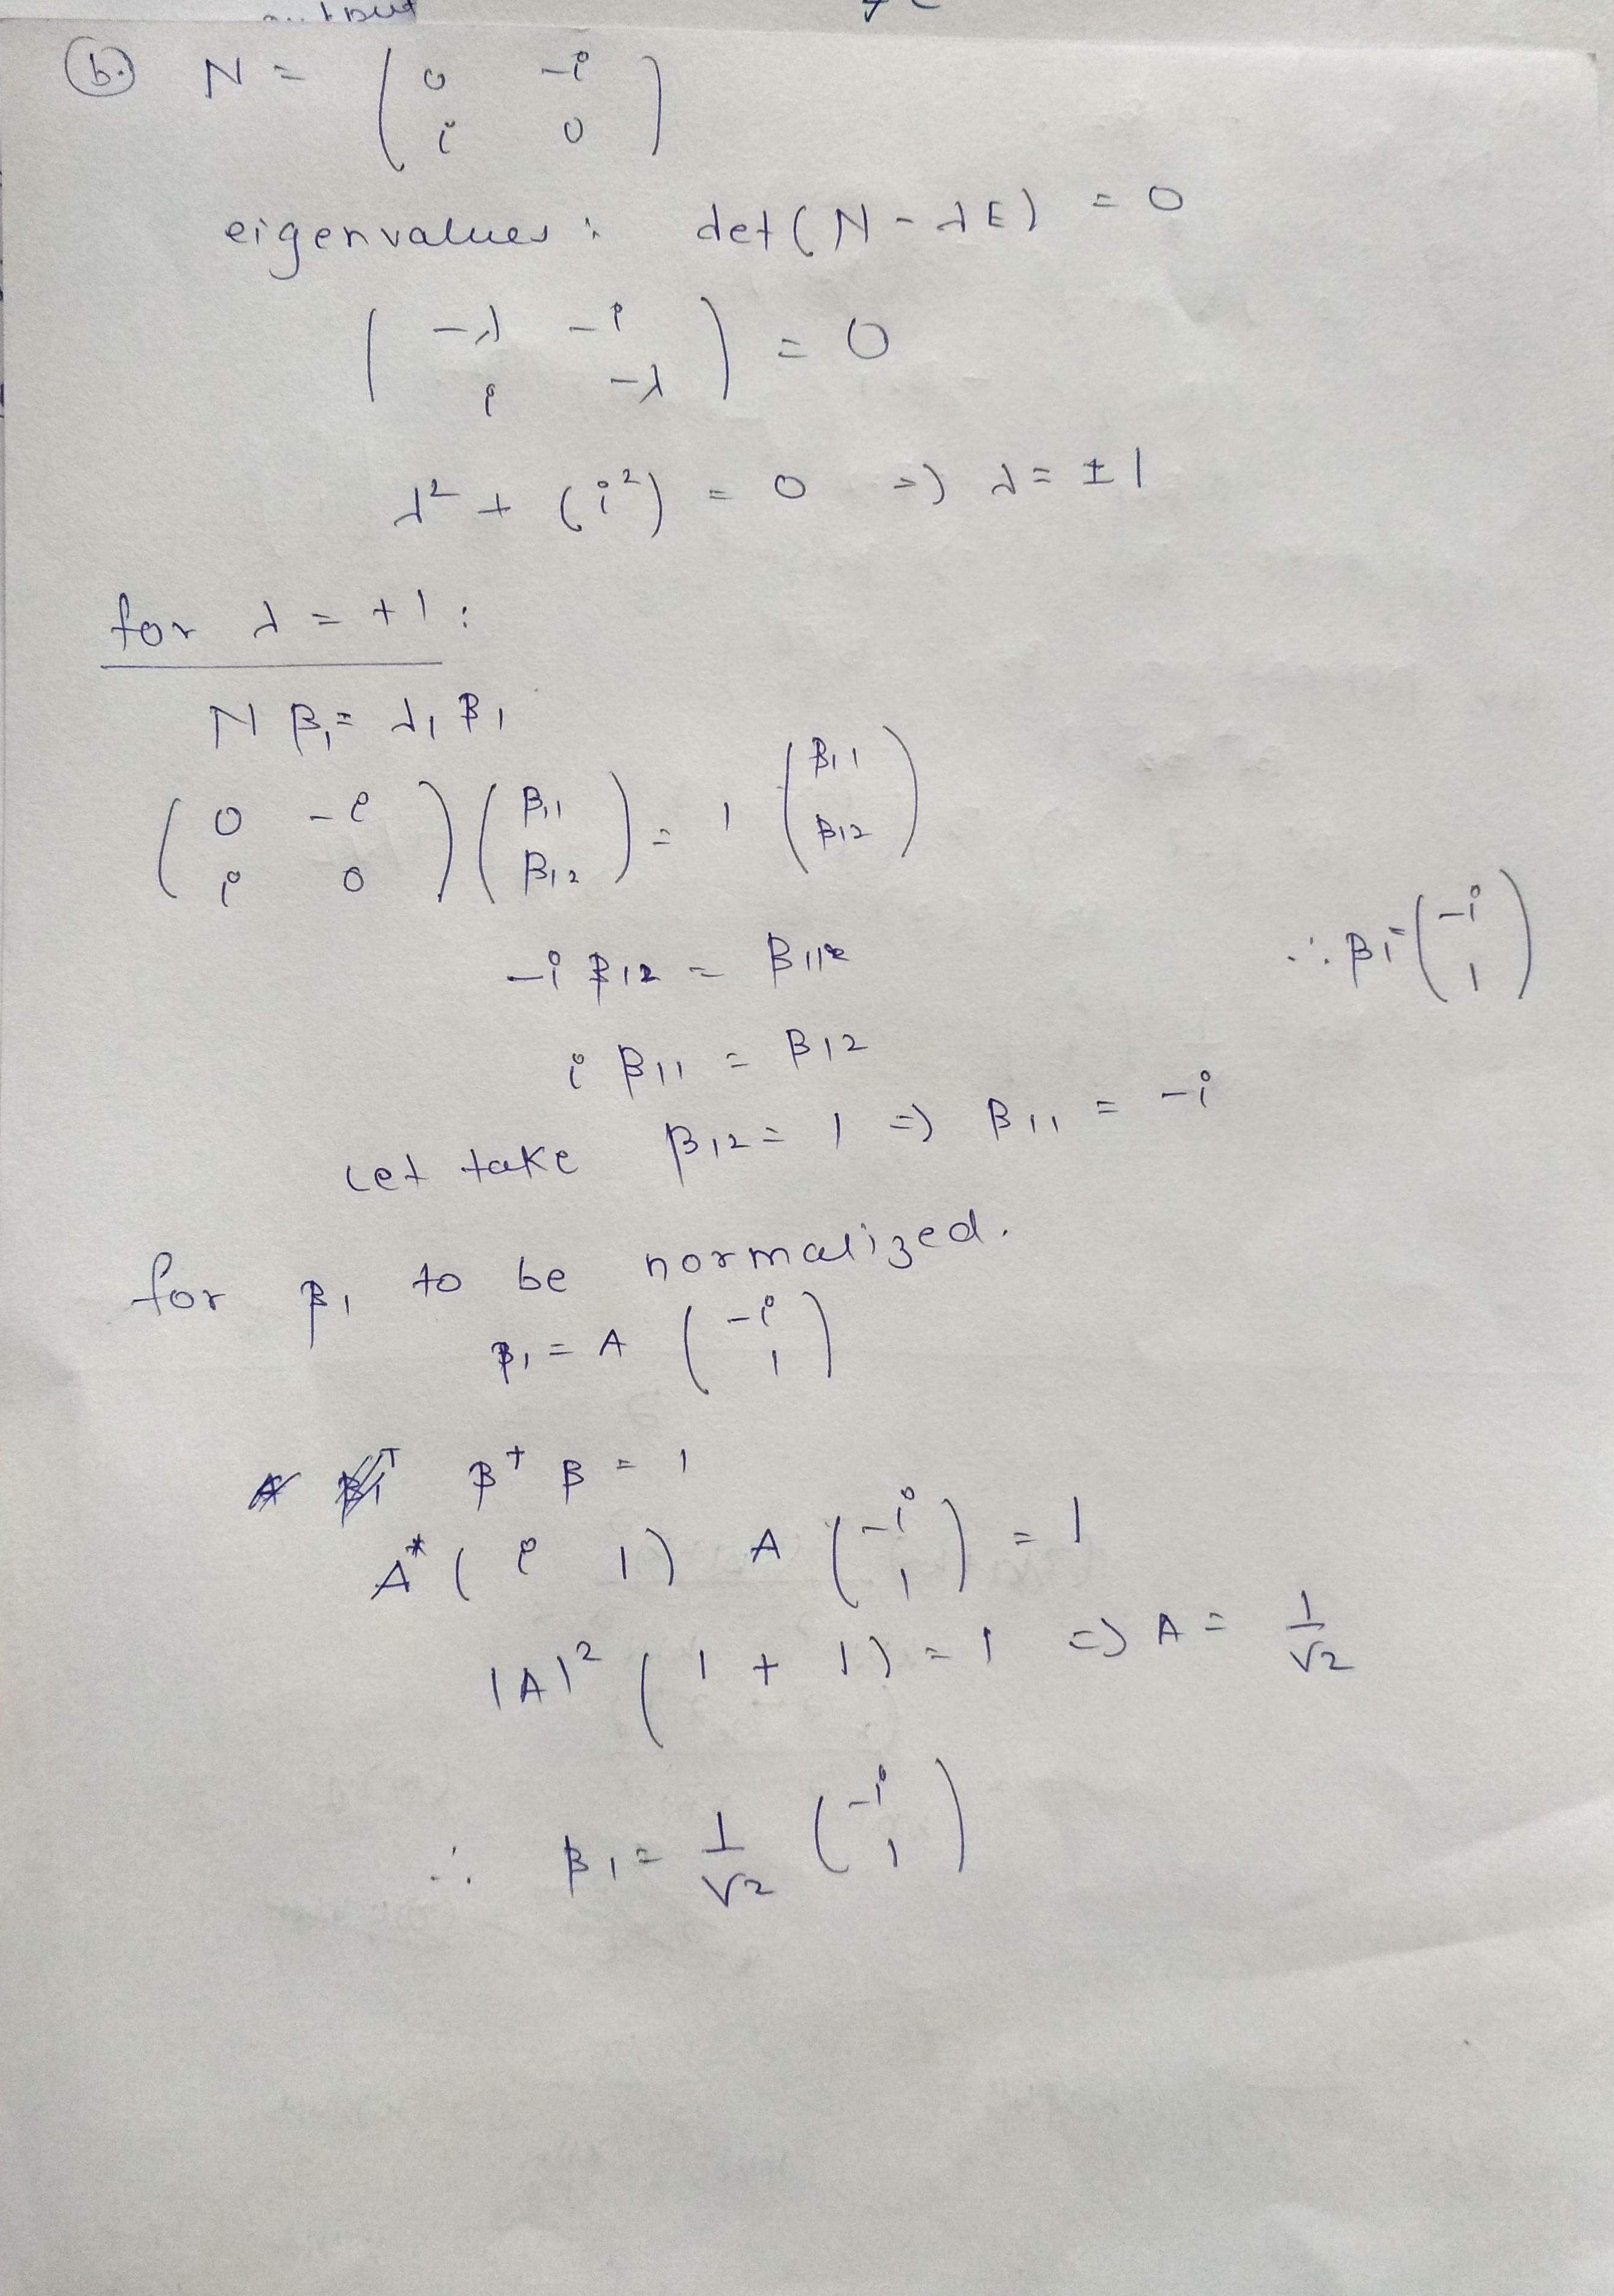 output
b. N = ( 0 -i
i 0 )
eigenvalues : det ( N - λE ) = 0
( -λ -i
i -λ ) = 0
λ² + (i²) = 0 => λ = ±1
for λ = +1 :
N β₁ = λ₁ β₁
( 0 -i
i 0 ) ( β₁₁
β₁₂ ) = 1 ( β₁₁
β₁₂ )
-i β₁₂ = β₁₁
∴ β₁ = ( -i
1 )
i β₁₁ = β₁₂
Let take β₁₂ = 1 => β₁₁ = -i
for β₁ to be normalized.
β₁ = A ( -i
1 )
β⁺ β = 1
A* ( i 1 ) A ( -i
1 ) = 1
|A|² ( 1 + 1 ) = 1 => A = 1/√2
∴ β₁ = 1/√2 ( -i
1 )